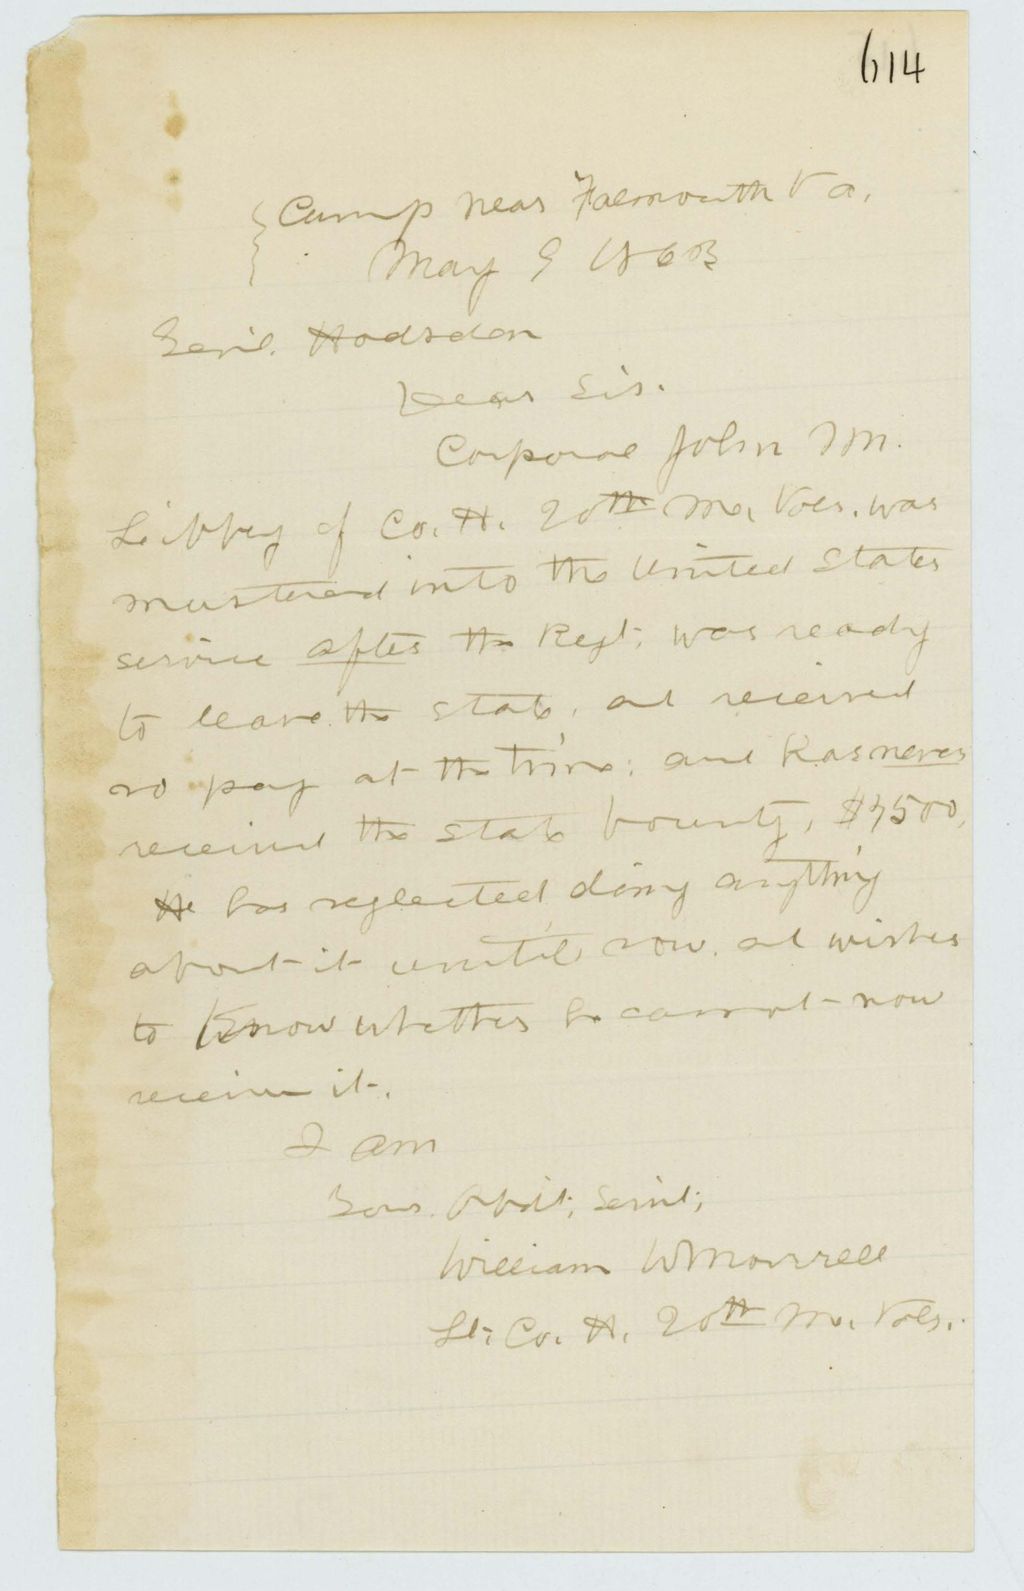 614
Camp near Falmouth Va.
May 9 1863
Genl. Hodsdon
Dear Sir.
Corporal John M.
Libbey of Co. H. 20th Me. Vols. was
mustered into the United States
service after the Regt. was ready
to leave the State, and received
no pay at the time; and has never
received the State bounty, $4500.
He has neglected doing anything
about it until now, and wishes
to know whether he cannot now
receive it.
I am
Your Obdt. Servt.
William W Morrell
Lt. Co. H. 20th Me. Vols.